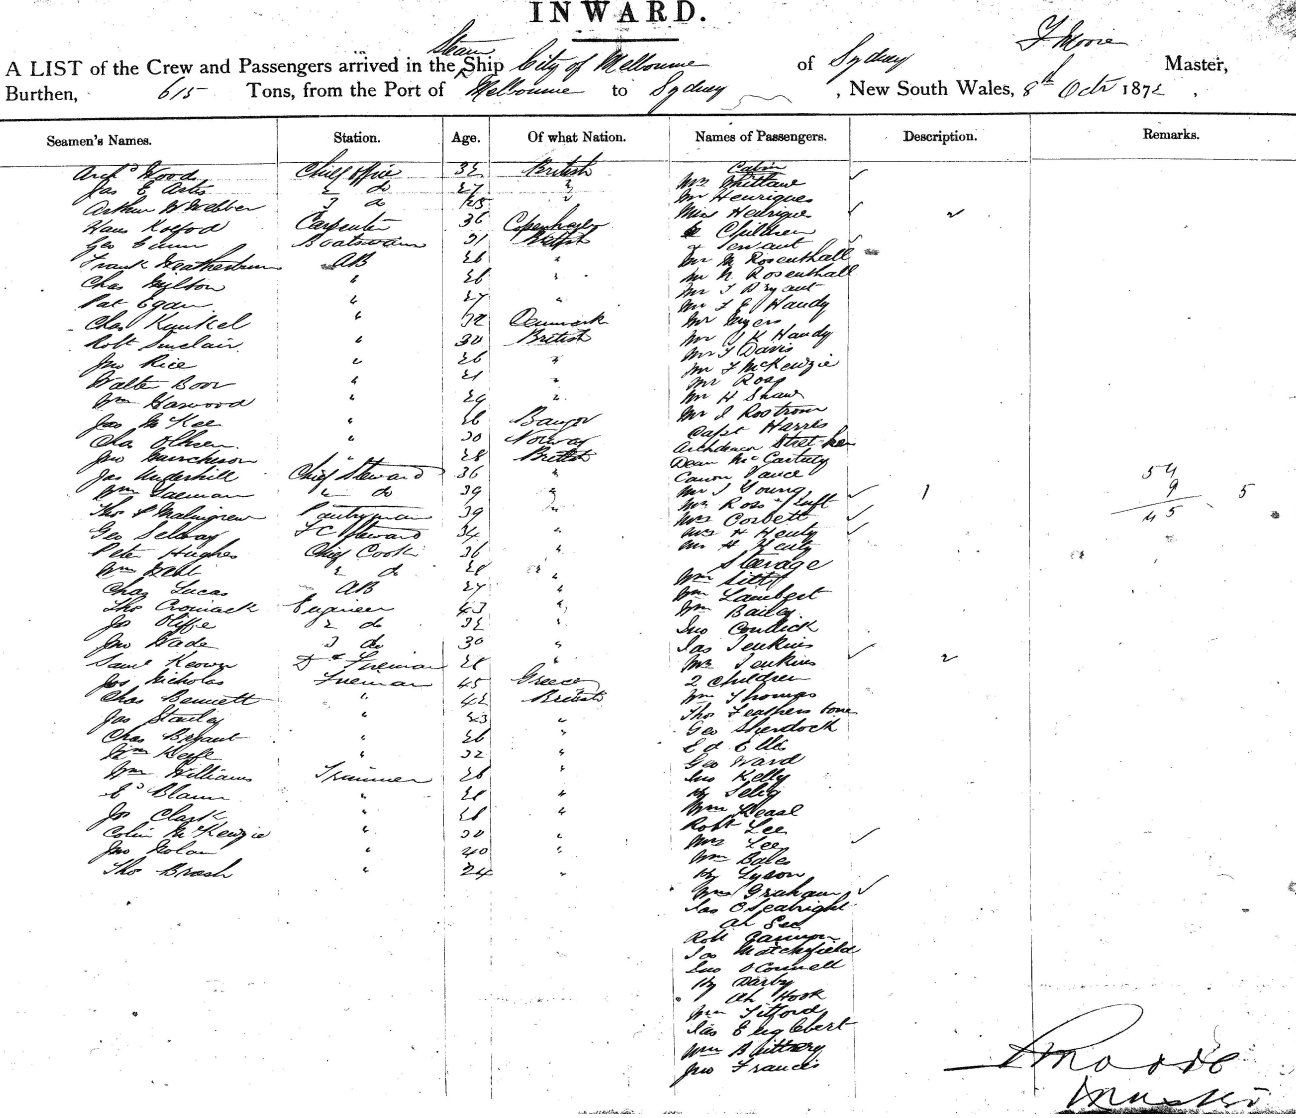 INWARD.
Steam
A LIST of the Crew and Passengers arrived in the Ship City of Melbourne of Sydney J Moore Master,
Burthen, 615 Tons, from the Port of Melbourne to Sydney, New South Wales, 8th Octr 1872.
Seamen's Names. Station. Age. Of what Nation. Names of Passengers. Description. Remarks.
Cabin
Archd Woods Chief Officer 32 British Mrs Whittaw
Jas E Artis 2 do 27 " Mr Henriques
Arthur W Webber 3 do 25 " Miss Henriques 2
Hans Kolfod Carpenter 36 Copenhagen Children
Geo Boatswain 31 British Servant
Frank Weatherburn AB 26 " Mr M Rosenthall
Chas " 26 " Mr N Rosenthall
Pat Egan " 27 " Mr J Bryant
Chas Kunkel " 32 Denmark Mr F E Handy
Robt Sinclair " 30 British Mr Myers
Jno Rice " 26 " Mr J K Handy
Walter Boor " 21 " Mr J Davis
Wm Garwood " 29 " Mr J McKenzie
Jas McKee " 26 Bangor Mr Ross
Chas Olhsen " 30 Norway Mr H Shaw
Jno Murchison " 28 British Mr J Rostrom
Jas Underhill Chief Steward 36 " Capt Harris
Wm 2 do 39 " Archdeacon
Thos P Malingrew Pantryman 39 " Dean McCarthy
Geo Selway F C Steward 34 " Canon Vance
Peter Hughes Chief Cook 36 " Mr J Young 1
Wm 2 do 28 " Mr Ross
Chas Lucas AB 27 " Mrs Corbett
Thos Cromack Engineer 43 " Mrs H Henty
Jo Oliffe 2 do 32 " Mr H Henty
Jno Wade 3 do 30 " Steerage
Saml Keown Dk Fireman 28 " Wm
Jas Nicholas Fireman 45 Greece Wm Lambert
Chas Bennett " 42 British Wm Bailey
Jas Stanley " 23 " Jno Condick
Chas Bryant " 26 " Jas Jenkins
Wm Keefe " 32 " Mrs Jenkins 2
Wm Williams Trimmer 26 " 2 Children
Ed Blann " 28 " Wm Thomas
Jos Clark " 28 " Thos Featherstone
Colin McKenzie " 30 " Geo Sherlock
Jno Nolan " 40 " Ed Ellis
Thos Brash " 24 " Geo Ward
Jno Kelly
Hy Selig
Wm Kease
Robt Lee
Mrs Lee
Wm Bales
Hy Lyson
Mrs Graham
Jas O Seabright
Ah See
Robt Gannon
Jas Matchfield
Jno O'Connell
Hy Darby
Ah Hook
Wm Titford
Jas Englebert
Wm Buttery
Jno Francis
54
9 5
45
J Moore
Master